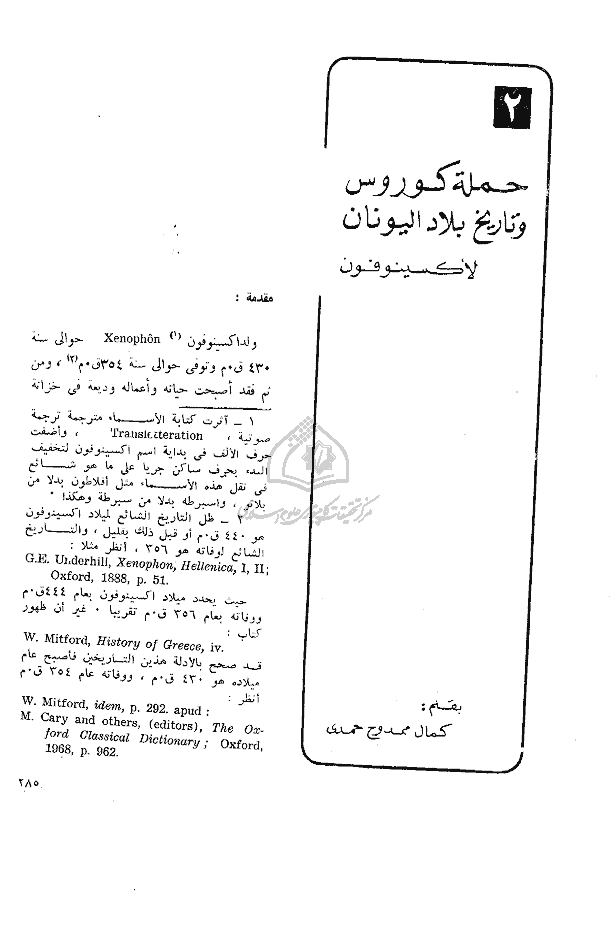 ٢
حملة كوروس
وتاريخ بلاد اليونان
لاكسينوفون
بقلم :
كمال ممدوح حمدى
مقدمة :
ولد اكسينوفون (١) Xenophôn حوالى سنة
٤٣٠ ق٠م وتوفى حوالى سنة ٣٥٤ق٠م(٢) ، ومن
ثم فقد أصبحت حياته وأعماله وديعة فى خزانة
١ ــ آثرت كتابة الأســـماء مترجمة ترجمة
صوتية ، Transletteration ، وأضفت
حرف الألف فى بداية اسم اكسينوفون لتخفيف
البدء بحرف ساكن جريا على ما هو شـــائع
فى نقل هذه الأســـماء مثل أفلاطون بدلا من
بلاتو ، واسبرطه بدلا من سبرطة وهكذا ٠
٢ ــ ظل التاريخ الشائع لميلاد اكسينوفون
هو ٤٤٠ ق٠م أو قبل ذلك بقليل ، والتـــاريخ
الشائع لوفاته هو ٣٥٦ ، أنظر مثلا :
G.E. Underhill, Xenophon, Hellenica, I, II;
Oxford, 1888, p. 51.
حيث يحدد ميلاد اكسينوفون بعام ٤٤٤ق٠م
ووفاته بعام ٣٥٦ ق٠م تقريبا ٠ غير أن ظهور
كتاب :
W. Mitford, History of Greece, iv.
قـد صحح بالأدلة هذين التـاريخين فأصبح عام
ميلاده هو ٤٣٠ ق٠م ، ووفاته عام ٣٥٤ ق٠م
أنظر :
W. Mitford, idem, p. 292. apud :
M. Cary and others, (editors), The Ox-
ford Classical Dictionary ; Oxford,
1968, p. 962.
٢٨٥